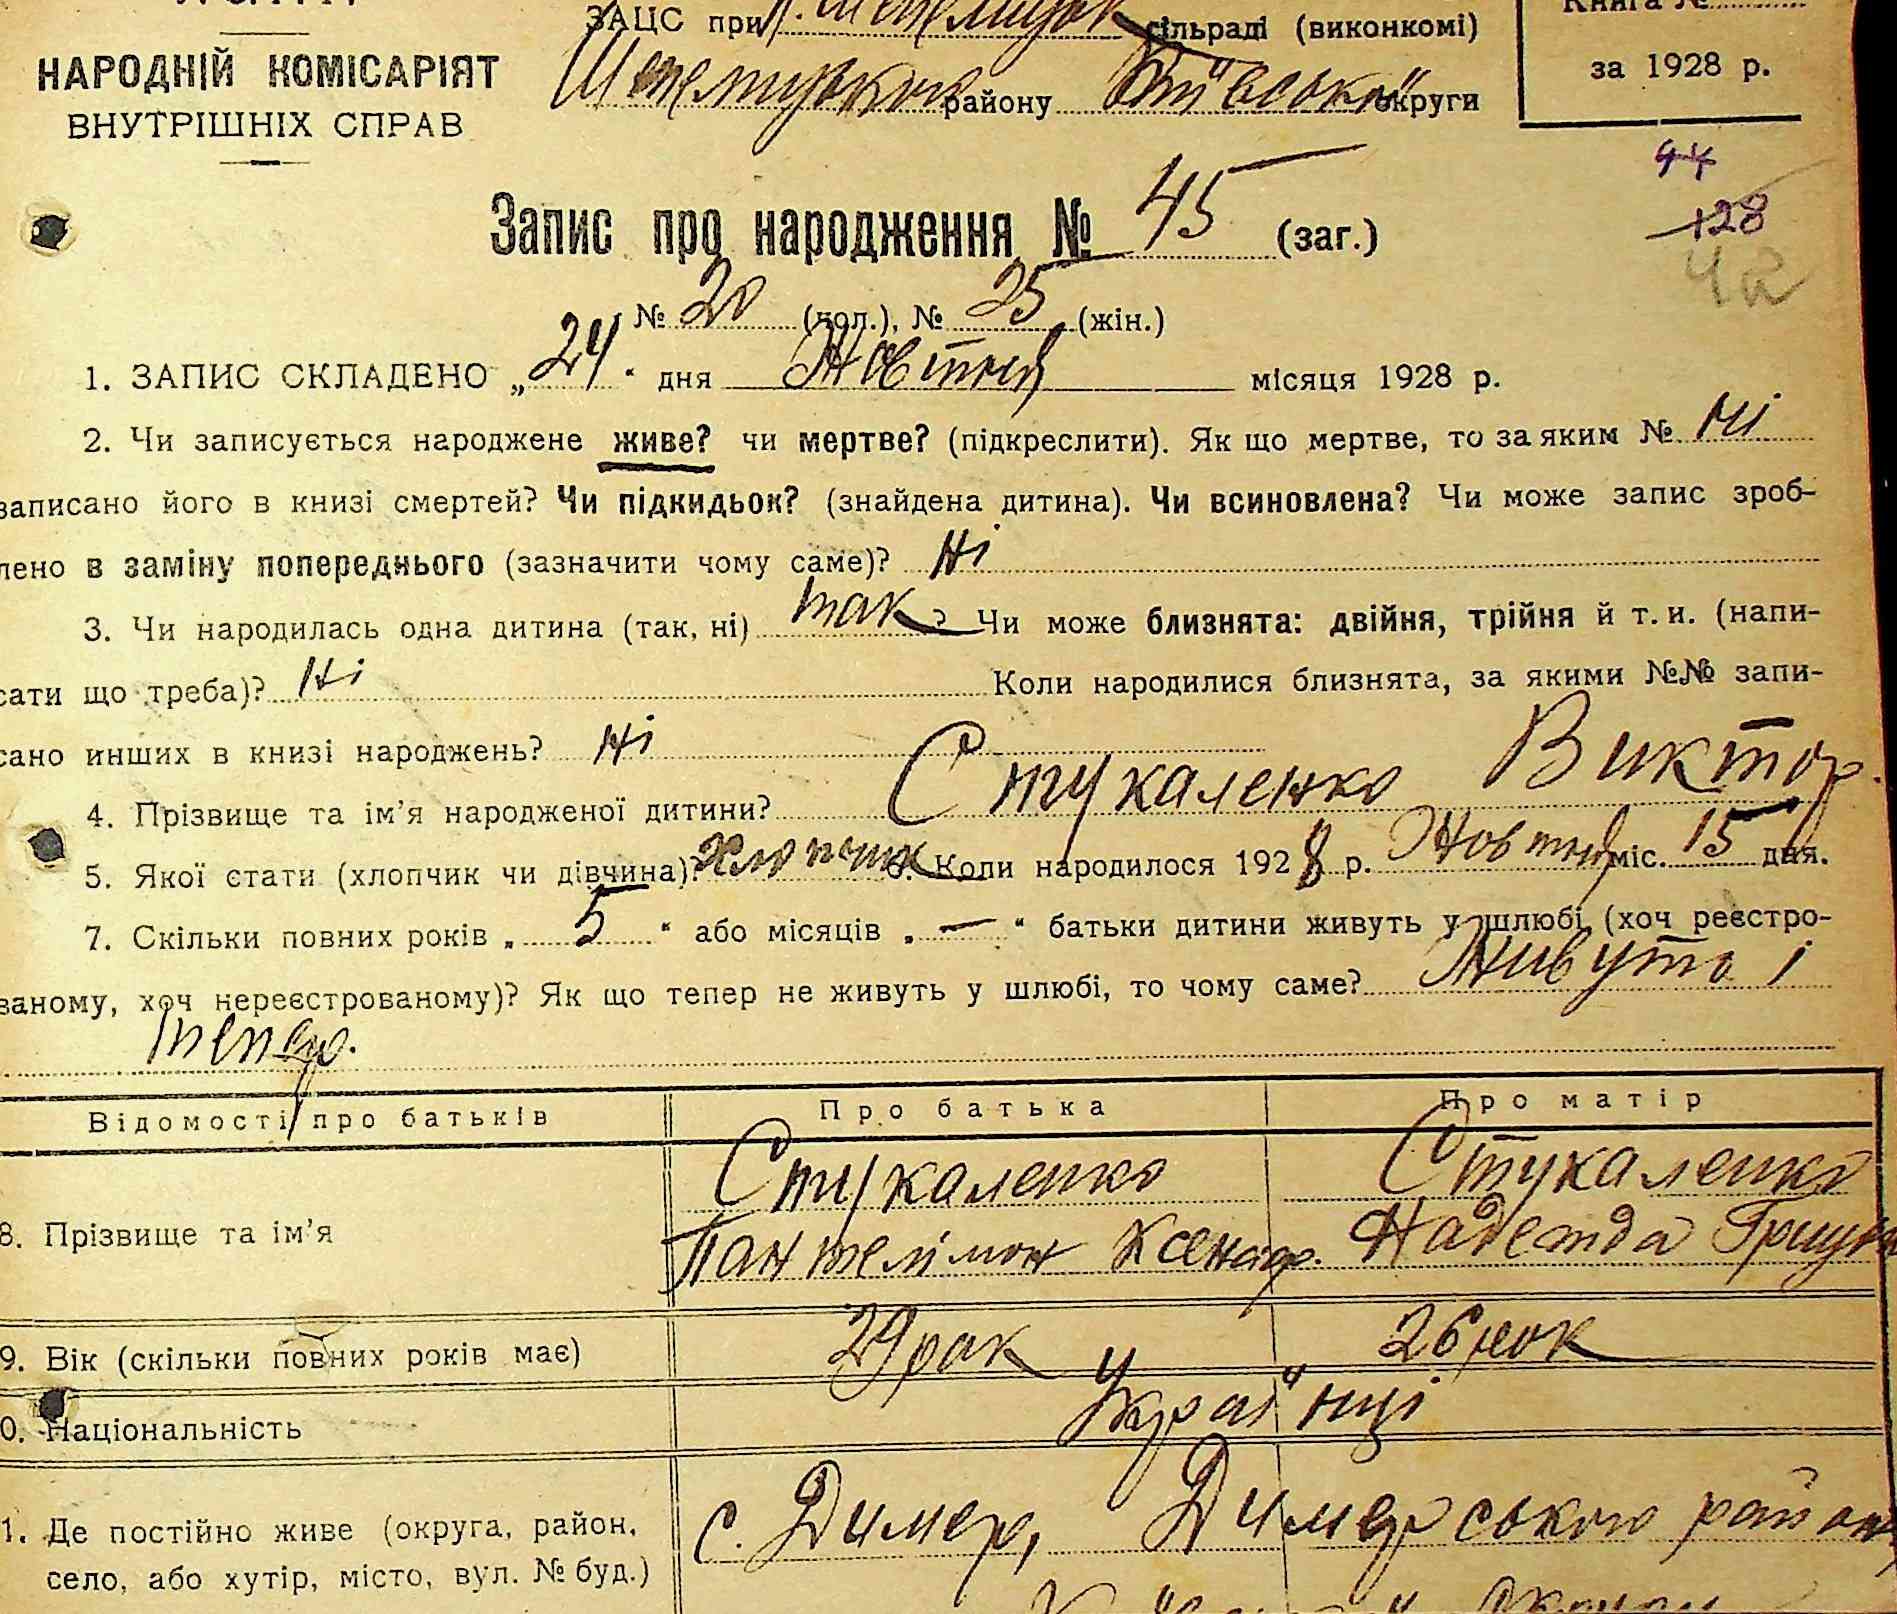 ЗАЦС при сільраді (виконкомі)
Книга №
НАРОДНІЙ КОМІСАРІЯТ
району Київської округи
за 1928 р.
ВНУТРІШНІХ СПРАВ
44
Запис про народження № 45 (заг.)
128
42
№ 20 (чол.), № 25 (жін.)
1. ЗАПИС СКЛАДЕНО „24“ дня Жовтня місяця 1928 р.
2. Чи записується народжене живе? чи мертве? (підкреслити). Як що мертве, то за яким № Ні
записано його в книзі смертей? Чи підкидьок? (знайдена дитина). Чи всиновлена? Чи може запис зроб-
лено в заміну попереднього (зазначити чому саме)? Ні
3. Чи народилась одна дитина (так, ні) так ? Чи може близнята: двійня, трійня й т. и. (напи-
сати що треба)? Ні Коли народилися близнята, за якими №№ запи-
сано инших в книзі народжень? Ні
4. Прізвище та ім'я народженої дитини? Стукаленко Виктор.
5. Якої стати (хлопчик чи дівчина)? Хлопчик 6. Коли народилося 1928 р. Жовтня міс. 15 дня.
7. Скільки повних років „5“ або місяців „—“ батьки дитини живуть у шлюбі (хоч реєстро-
ваному, хоч нереєстрованому)? Як що тепер не живуть у шлюбі, то чому саме? Живуть і
тепер.
Відомості про батьків Про батька Про матір
Стукаленко Стукаленко
8. Прізвище та ім'я
Пантелімон Ксеноф. Надежда
9. Вік (скільки повних років має) 29 рок 26 рок
0. Національність Українці
1. Де постійно живе (округа, район, с. Димер, Димерського району
село, або хутір, місто, вул. № буд.)